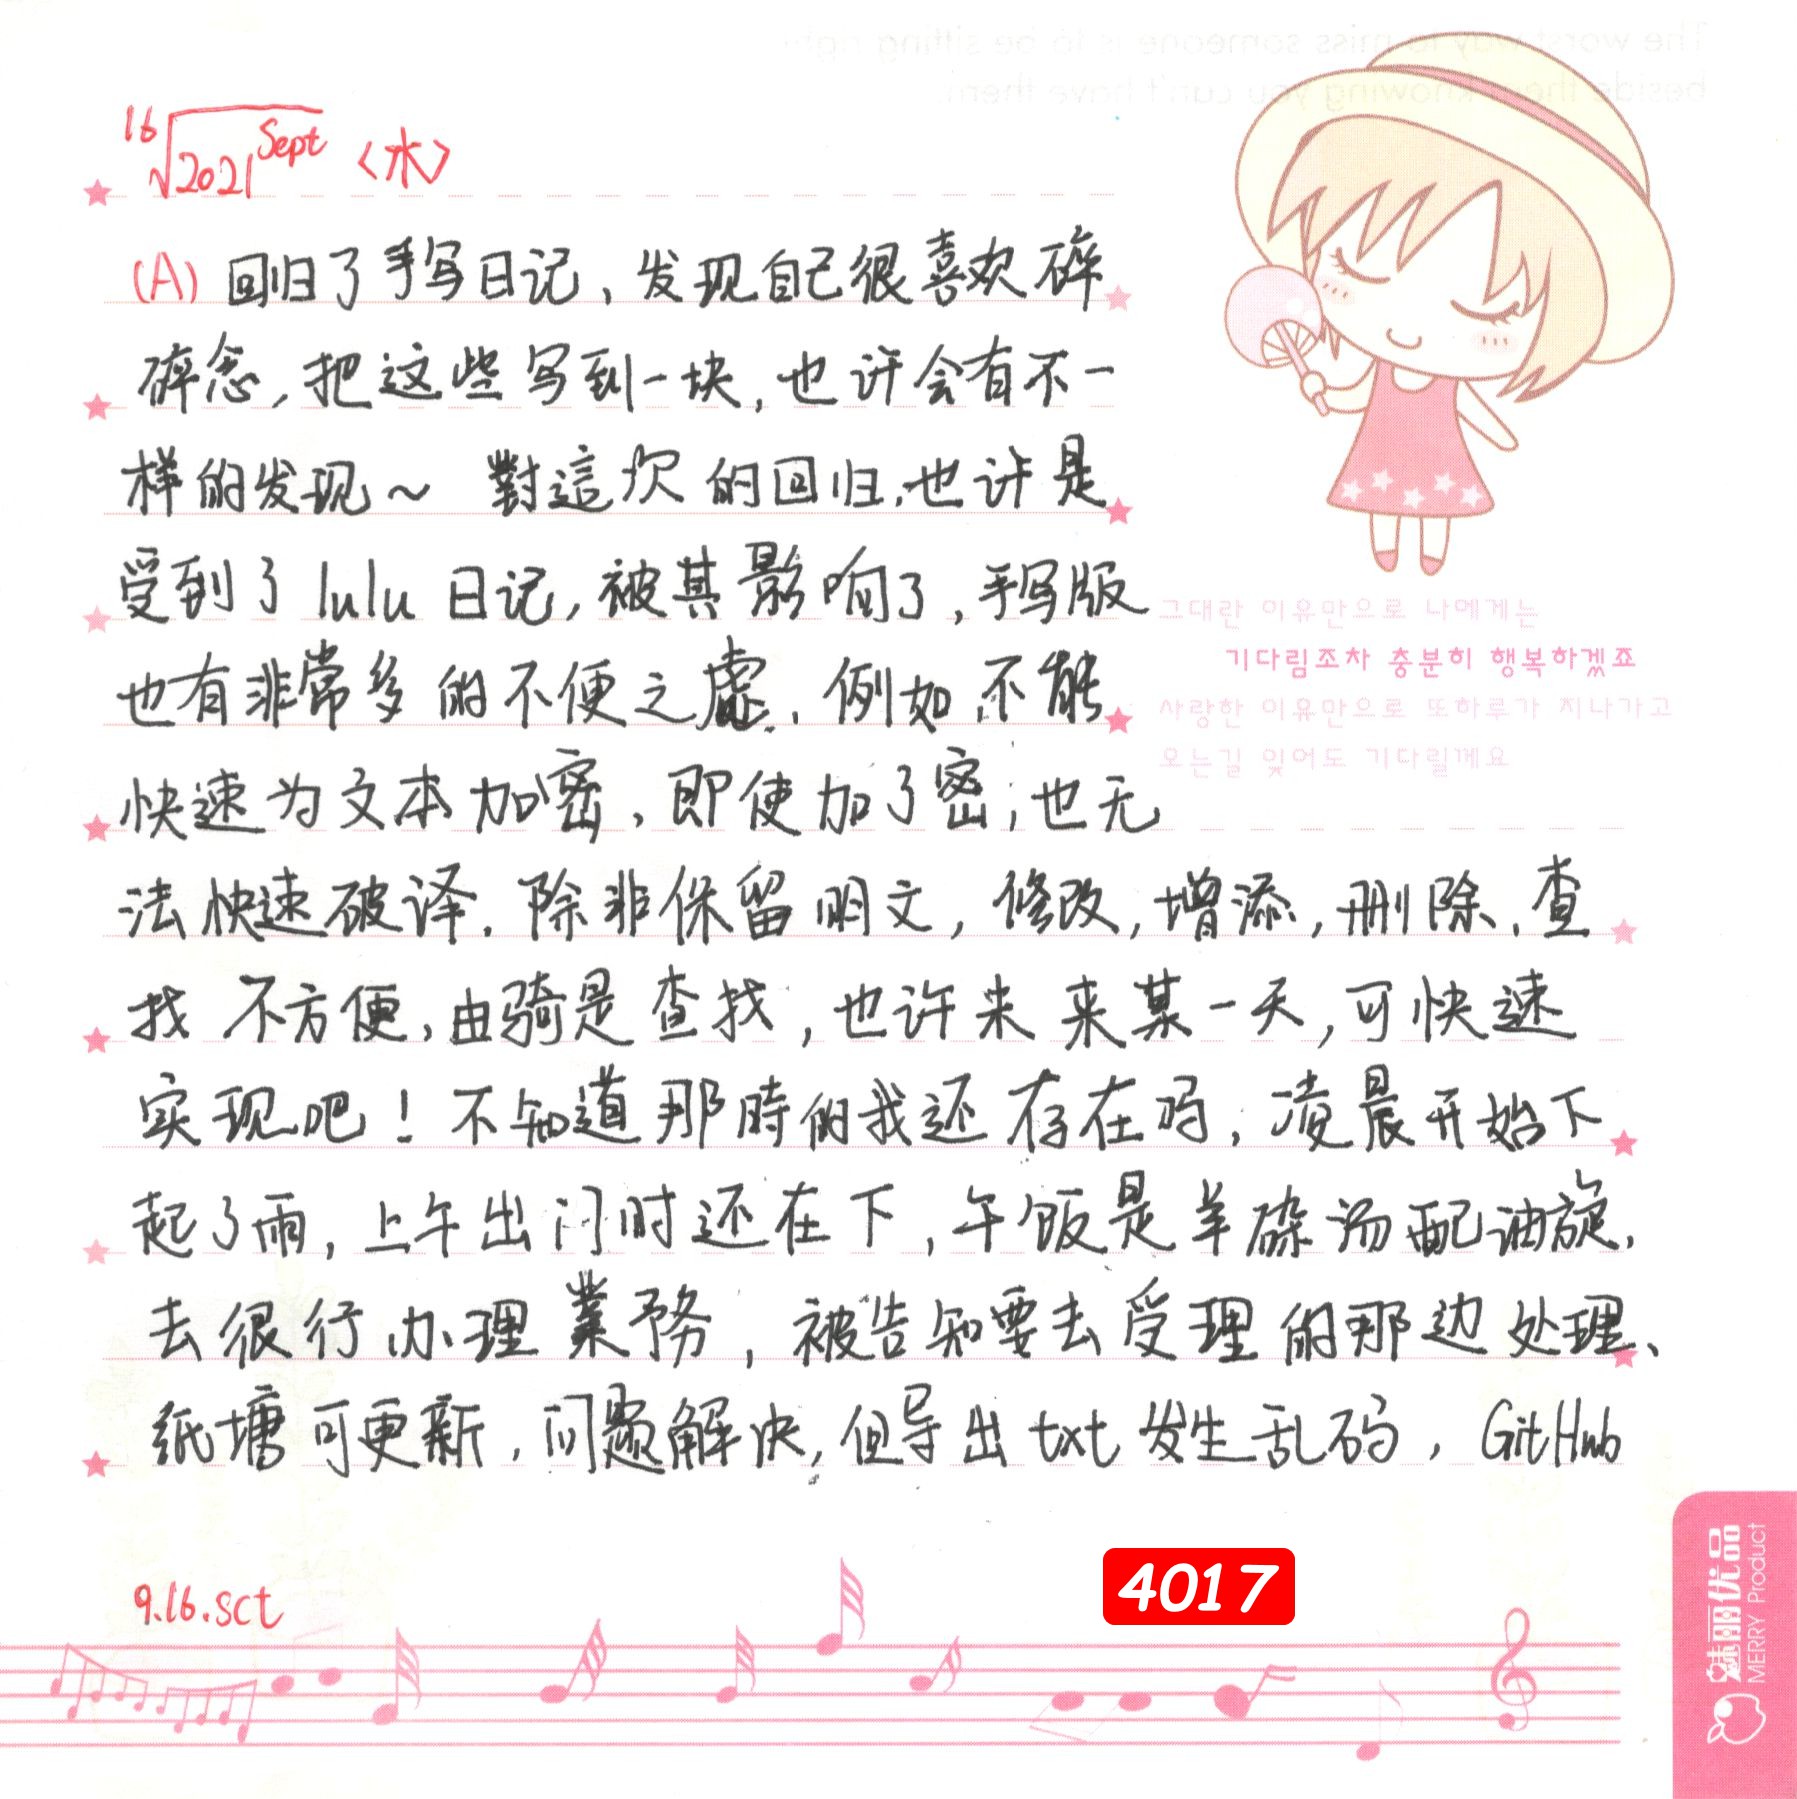 The worst way to miss someone is to be sitting right
beside them knowing you can't have them.
16√2021 Sept <水>
(A) 回归了手写日记，发现自己很喜欢碎
碎念，把这些写到一块，也许会有不一
样的发现~ 對這次的回归，也许是
受到了 lulu 日记，被其影响了，手写版
也有非常多的不便之處，例如，不能
快速为文本加密，即使加了密，也无
法快速破译，除非保留明文，修改，增添，删除，查
找 不方便，由骑是查找，也许未来某一天，可快速
实现吧！不知道那時的我还存在吗，凌晨开始下
起了雨，上午出门时还在下，午饭是羊杂汤配油旋，
去很行办理業務，被告知要去受理的那边处理、
纸塘可更新，问题解决，但导出txt发生乱码，GitHub
그대란 이유만으로 나에게는
기다림조차 충분히 행복하겠죠
사랑한 이유만으로 또하루가 지나가고
오는길 잊어도 기다릴께요
9.16.sct
4017
魅丽优品
MERRY Product